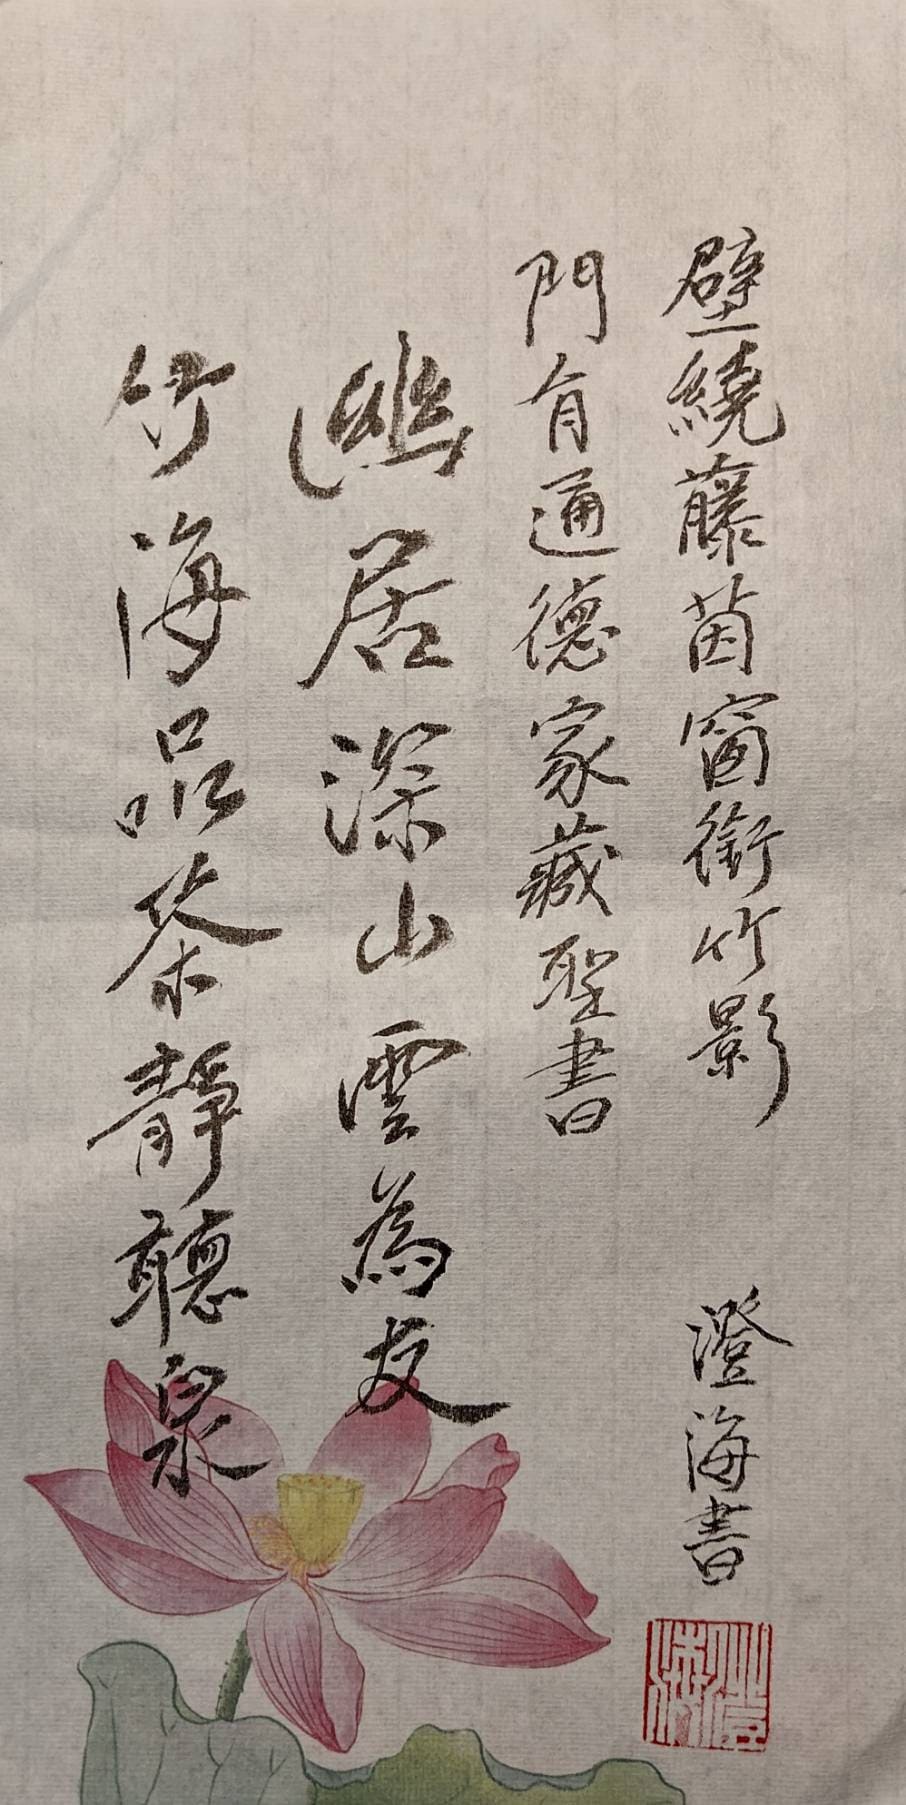 壁繞藤茵窗銜竹影
門有通德家藏聖書
幽居深山雲為友
竹海品茶靜聽泉
澄海書